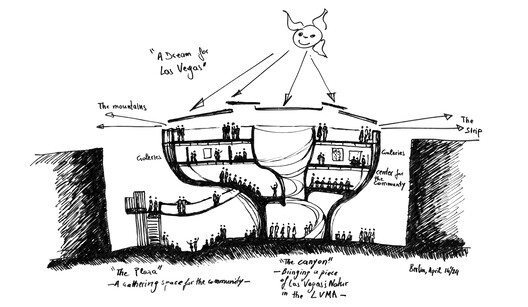 "A Dream for
Las Vegas"
The mountains
The
Strip
Galleries
Galleries
center for
the
community
"The Plaza"
— A gathering space for the community —
"The canyon"
— Bringing a piece
of Las Vegas; Natur
in the LVMA —
Berlin, April 16/24